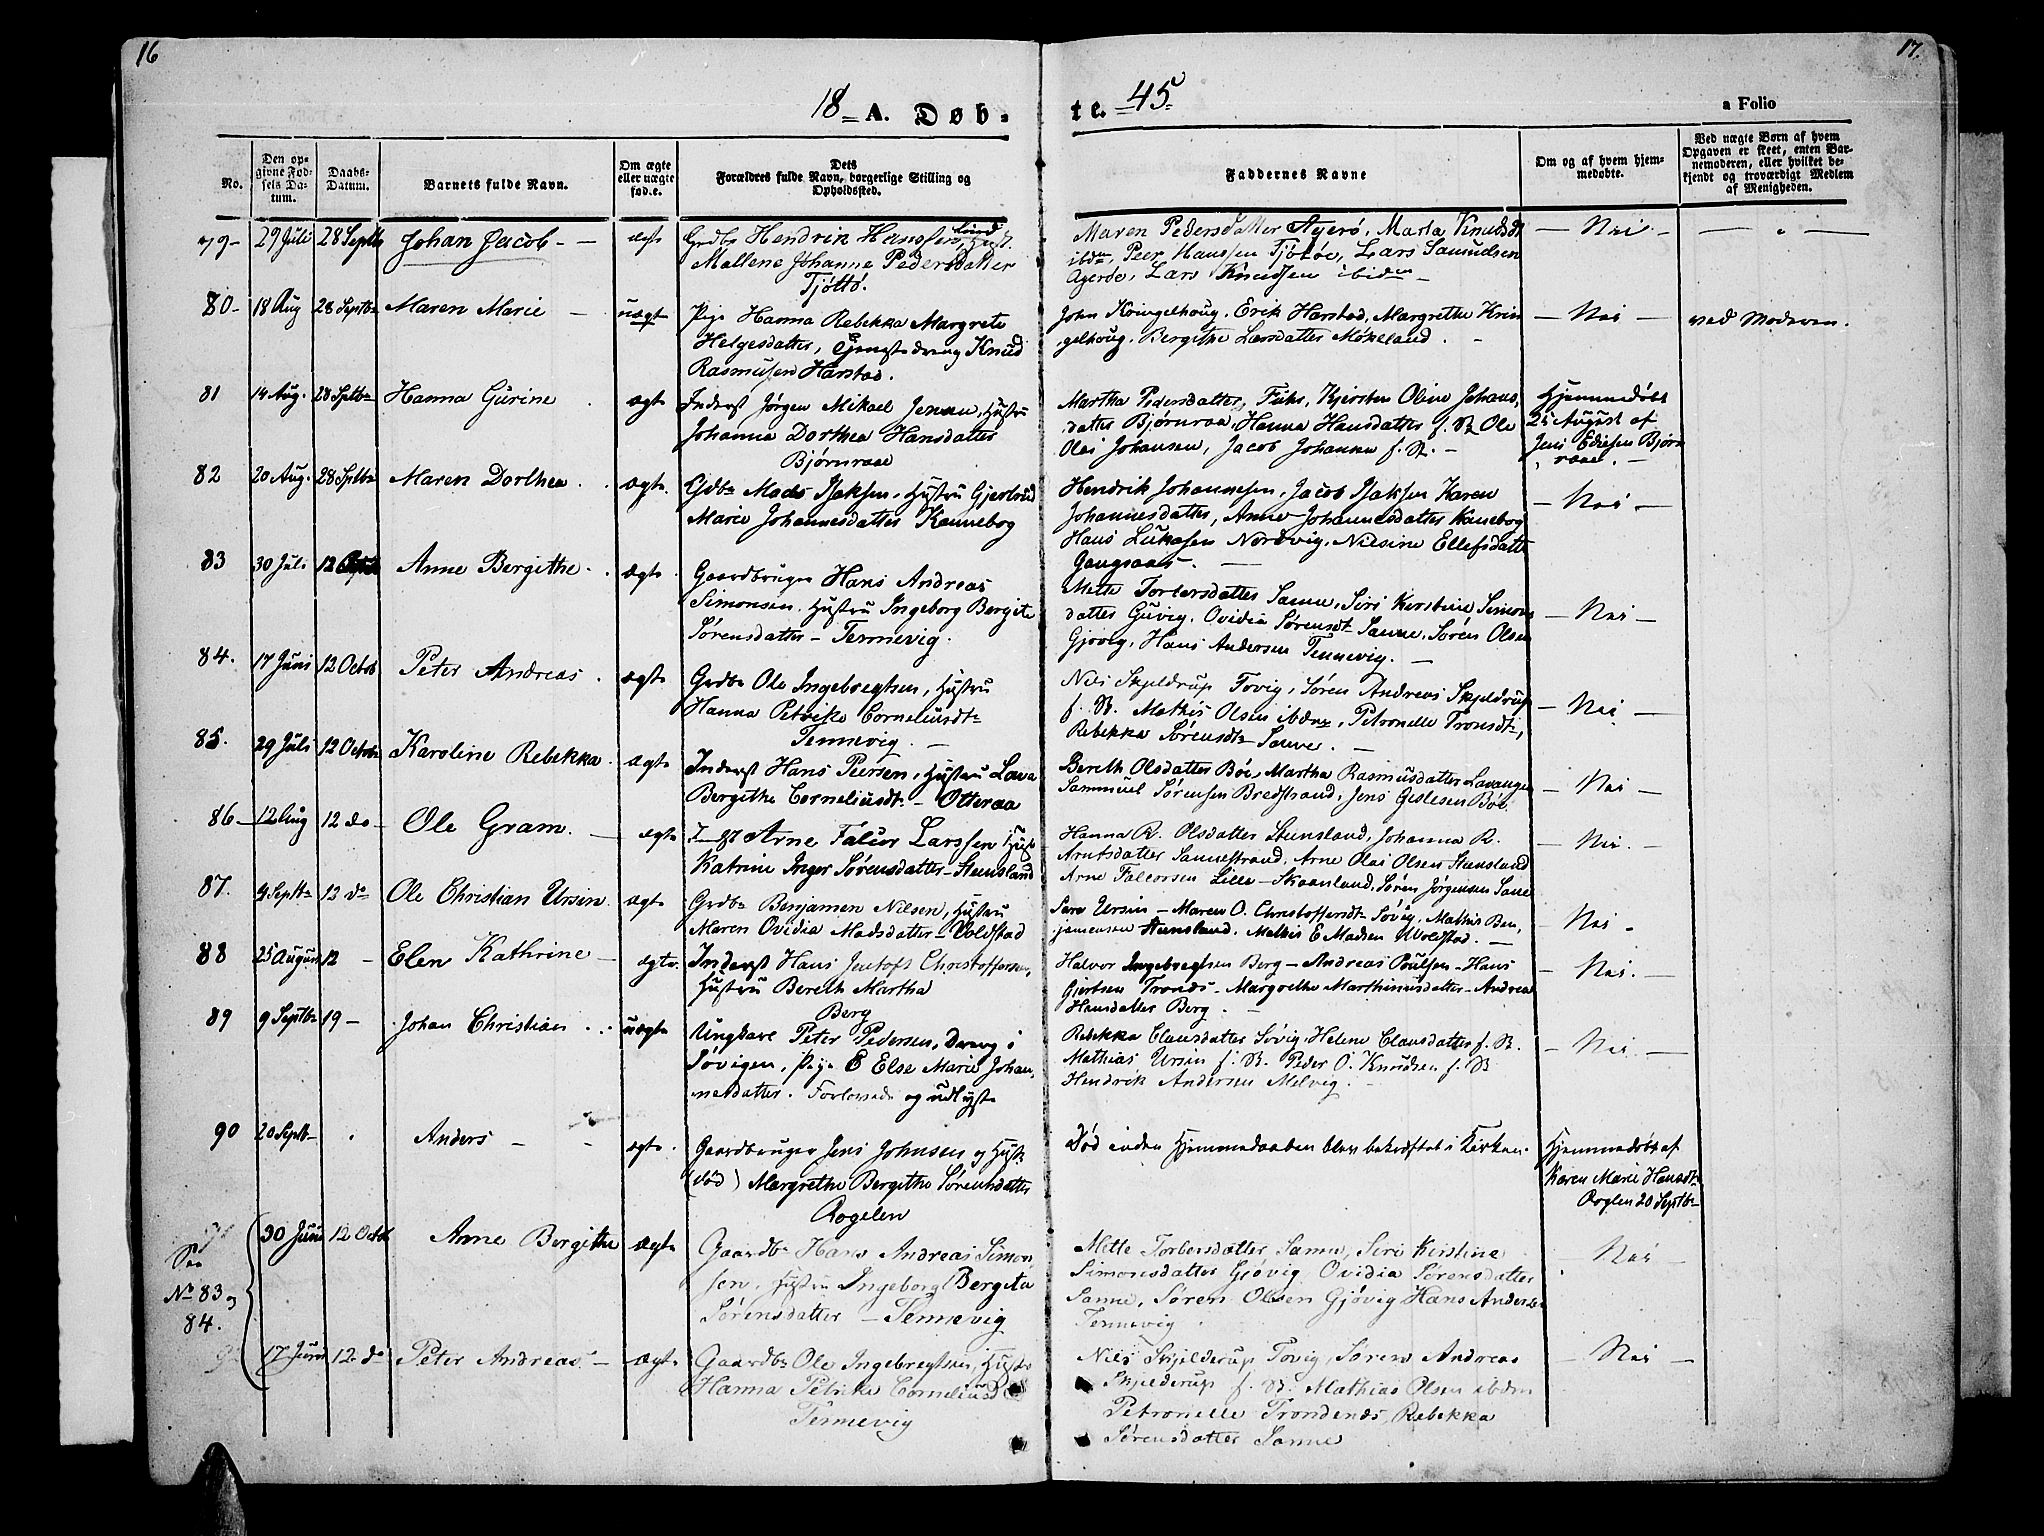 16
17.
18 A. Døb-
te. 45
a Folio
No.
Den op-
givne Fød-
sels Da-
tum.
Daabs-
Datum.
Barnets fulde Navn.
Om ægte
eller uægte
fød.e.
Dets
Forældres fulde Navn, borgerlige Stilling og
Opholdssted.
Faddernes Navne
Om og af hvem hjem-
medøbte.
Ved uægte Børn af hvem
Opgaven er skeet, enten Bar-
nemoderen, eller hvilket be-
kjendt og troværdigt Medlem
af Menigheden.
79- 29 Juli 28 Septb Johan Jacob - ægt Grdb Hendrik Hanssen Lind, Hust.
Mallene Johanne Pedersdatter
Tjøttø.
Maren Pedersdatter Ayerø, Marta Knudsdt
ibdm, Peer Hanssen Tjøtøe, Lars Samuelsen
Ayerøe, Lars Knudsen ibidem
- Nei -
80- 18 Aug 28 Septbr Maren Marie - uægt Pige Hanna Rebekka Margrete
Helgesdatter, Tjenestedreng Knud
Rasmusen Harstad.
John Kringelhoug. Erik Harstad, Margrethe Krin
gelhoug. Bergithe Larsdatter Møkeland.
- Nei - ved Moderen.
81 14 Aug. 28 Sptbr Hanna Gurine ægte Inderst Jørgen Mikael Jensen, Hustru
Johanna Dorthea Hansdatter
Bjørnraae
Martha Pedersdatter, Fuhs, Kjersten Oline Johans,
datter Bjørnraa, Hanna Hansdatter f. St. Ole
Olai Johansen, Jacob Johansen f. St. -
Hjemmedøbt
25 August af
Jens Ediasen Bjørn
raae. -
82 20 Aug. 28 Sptbr Maren Dorthea ægte. Gdbr Mads Isaksen, Hustru Gjertrud
Marie Johannesdatter Kannebog
Hendrik Johannesen, Jacob Isaksen Karen
Johannesdatter, Anne Johannesdatter Kanebog
Hans Lukasen Nordvig, Nilsine Ellefsdatt
Gangsaas. -
- Nei -
83 30 Juli 12 Anne Bergithe. ægte Gaardbruger Hans Andreas
Simonsen, Hustru Ingeborg Bergite
Sørensdatter - Tennevig.
Mette Torbersdatter Sanne, Siri Kerstine Simons
datter Gjøvig, Ovidia Sørensdt Sanne, Søren Olsen
Gjøvig, Hans Andersen Tennevig. -
- Nei -
84. 17 Juni 12 Octob Peter Andreas. ægte Grdbr Ole Ingebregtsen, Hustru
Hanna Petrike Corneliusdtr
Tennevig. -
Nils Skjeldrup Tovig, Søren Andreas Skjeldrup
f. St. Mathis Olsen ibdm, Petronelle Tronsdtr,
Rebekka Sørensdtr Sanne. -
- Nei -
85. 29 Juli 12 Octobr Karoline Rebekka. ægte Inderst Hans Peersen, Hustru Lava
Bergithe Corneliusdt. - Otteraa
Bereth Olsdatter Bøe, Martha Rasmusdatter Lavangen
Sammuel Sørensen Bredstrand, Jens Geslesen Bøe.
- Nei -
86- 12 Aug 12 do - Ole Gram. - ægte Indst Arne Falcor Larssen Hust
Katrine Inger Sørensdatter - Stensland
Hanna R. Olsdatter Stensland, Johanna R.
Arntsdatter Sannestrand, Arne Olai Olsen Stensland
Arne Falcorsen Lille-Skaanland, Søren Jørgensen Sane
- Nei. -
87. 9 Septbr 12 do Ole Christian Ursin. ægte Grdbr Benjamen Nilsen, Hustru
Maren Ovidia Madsdatter - Voldstad
Sern Ursin - Maren O. Christoffersdt Søvig, Mathis Ben,
jamensen Stensland. Mathis E Madsen Woldstad. -
- Nei -
88 25 August 12 - Elen Kathrine - ægte. Inderst Hans Jentoft Christoffersen,
Hustru Bereth Martha
Berg
Halvor Ingebregtsen Berg - Andreas Poulsen - Hans
Gjertsen Tronds - Margrethe Marthinusdatter - Andrea
Hansdatter Berg. -
- Nei. -
89 9 Septbr 19 - Johan Christian . . uægte Ungkarl Peter Pedersen, Dreng i
Søvigen, Pige E Else Marie Johan,
nesdatter. Forlovede og udlyste
Rebekka Clausdatter Søvig, Helene Clausdatter f. St.
Mathias Ursin f. St. Peder O. Knudsen f. St
Hendrik Andersen Melvig.
- Nei. -
90 20 Septb Anders - - ægte. Gaardbruger Jens Johnsen og Hust:
(død) Margrethe Bergithe Sørensdatter
Rogelen
Død inden Hjemmedaaben blev bekræftet i Kirken.
Hjemmedøbt af
Karen Marie Hansdtr
Roglen 20 Septbr
See
No 83 og
84.
30 Juni 12 Octob Anne Bergithe ægte Gaardbr Hans Andreas Simon
sen, Hustru Ingeborg Bergita
Sørensdatter - Tennevig
Mette Torbersdatter Sanne, Siri Kirstine
Simonsdatter Gjøvig Ovidia Sørensdatter
Sanne, Søren Olsen Gjøvig Hans Andersen
Tennevig
Nei -
17 Juni 12 do Peter Andreas. - ægte Gaardbr Ole Ingebregtsen, Hustr
Hanna Petrike Corneliusd
Tennevig
Nils Skjelderup Tovig, Søren Andreas
Skjelderup f. St. Mathias Olsen ibdm
Petronelle Trondenæs, Rebekka
Sørensdatter Sanne
- Nei -